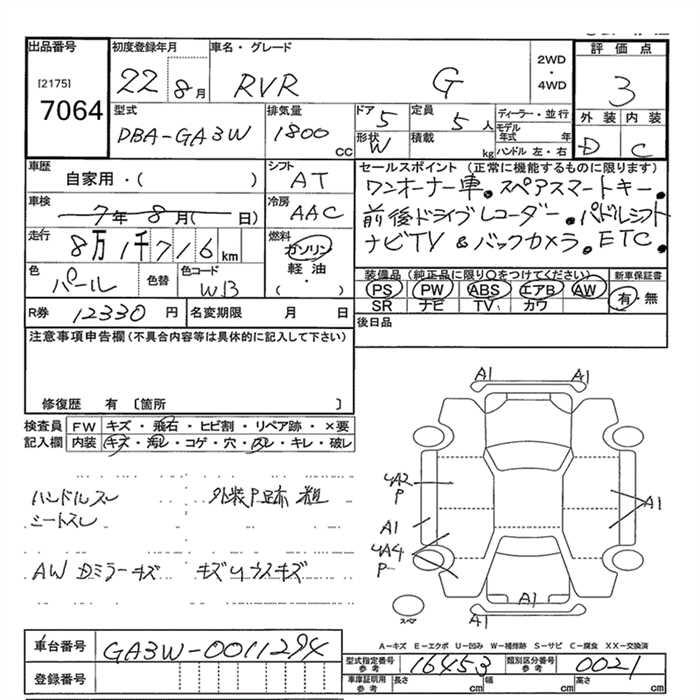 出品番号
[2175]
7064
初度登録年月
22 8月
車名・グレード
RVR G
2WD
・
4WD
評価点
3
外装 内装
D C
型式
DBA-GA3W
排気量
1800 CC
ドア 5
形状 W
定員 5人
積載 kg
ディーラー・並行
モデル年式 年
ハンドル 左・右
車歴
自家用・( )
シフト
AT
車検
7年 8月( 日)
冷房
AAC
走行
8万1千716km
燃料
ガソリン
軽油
( ・ )
色
パール
色替
色コード
WB
セールスポイント(正常に機能するものに限ります)
ワンオーナー車。スペアスマートキー。
前後ドライブレコーダー。パドルシフト
ナビTV&バックカメラ。ETC。
装備品(純正品に限り○をつけてください)
PS PW ABS エアB AW
SR ナビ TV カワ
新車保証書
有・無
R券 12330円
名変期限 月 日
後日品
注意事項申告欄(不具合内容等は具体的に記入して下さい)
修復歴 有〔箇所 〕
検査員記入欄
FW キズ・飛石・ヒビ割・リペア跡・×要
内装 キズ・汚レ・コゲ・穴・スレ・キレ・破レ
ハンドルスレ
シートスレ
外装 粗
AW Dミラーキズ
A1 A1
4A2
P
A1
A1
4A4
P
A1
A1
スペア
A-キズ E-エクボ U-凹み W-補修跡 S-サビ C-腐食 XX-交換済
車台番号 GA3W-0011294
登録番号
型式指定番号 参考 16453
類別区分番号 参考 0021
車庫証明用 参考 長さ cm 幅 cm 高さ cm